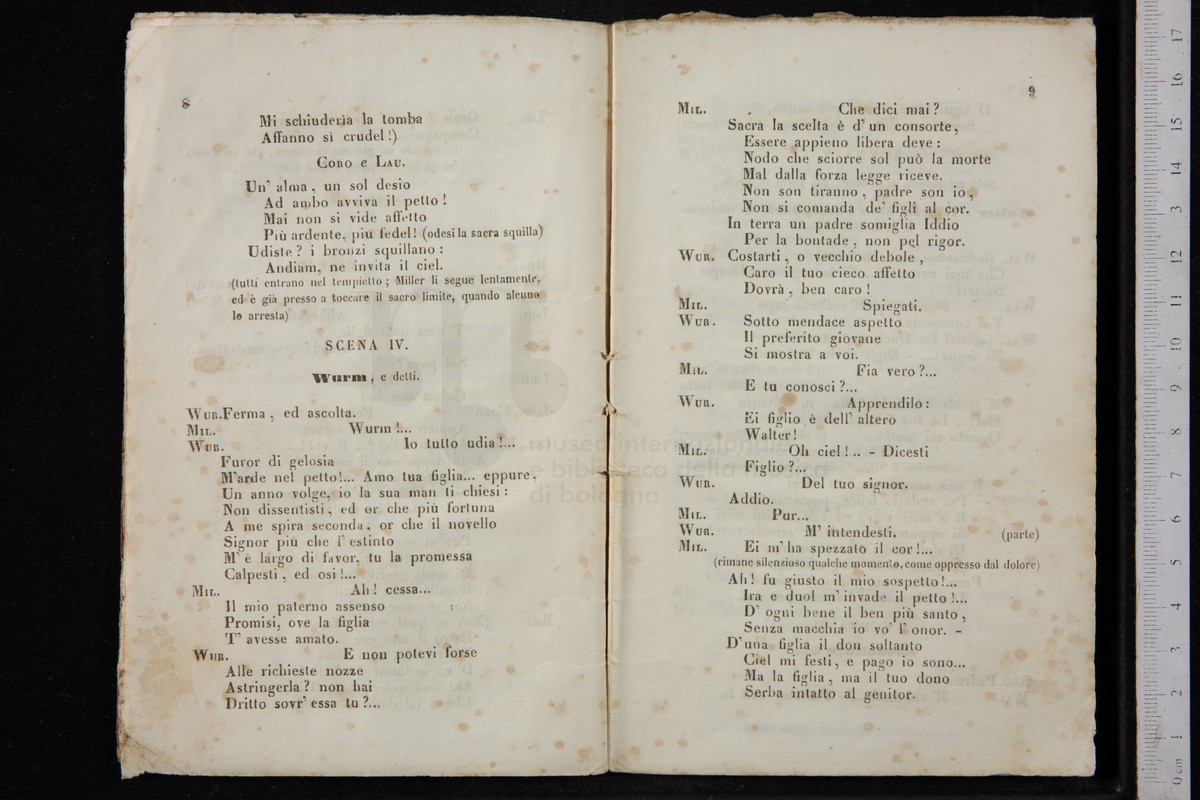 8
Mi schiuderìa la tomba
Affanno sì crudel!)
CORO e LAU.
Un' alma, un sol desio
Ad ambo avviva il petto!
Mai non si vide affetto
Più ardente, piu fedel! (odesi la sacra squilla)
Udiste? i bronzi squillano:
Andiam, ne invita il ciel.
(tutti entrano nel tempietto; Miller li segue lentamente,
ed è già presso a toccare il sacro limite, quando alcuno
lo arresta)
SCENA IV.
Wurm, e detti.
WUR. Ferma, ed ascolta.
MIL. Wurm!...
WUR. Io tutto udia!...
Furor di gelosia
M'arde nel petto!... Amo tua figlia... eppure,
Un anno volge, io la sua man ti chiesi:
Non dissentisti, ed or che più fortuna
A me spira seconda, or che il novello
Signor più che l' estinto
M' è largo di favor, tu la promessa
Calpesti, ed osi!...
MIL. Ah! cessa...
Il mio paterno assenso
Promisi, ove la figlia
T' avesse amato.
WUR. E non potevi forse
Alle richieste nozze
Astringerla? non hai
Dritto sovr' essa tu?...
9
MIL. Che dici mai?
Sacra la scelta è d' un consorte,
Essere appieno libera deve:
Nodo che sciorre sol può la morte
Mal dalla forza legge riceve.
Non son tiranno, padre son io,
Non si comanda de' figli al cor.
In terra un padre somiglia Iddio
Per la bontade, non pel rigor.
WUR. Costarti, o vecchio debole,
Caro il tuo cieco affetto
Dovrà, ben caro!
MIL. Spiegati.
WUR. Sotto mendace aspetto
Il preferito giovane
Si mostra a voi.
MIL. Fia vero?...
E tu conosci?...
WUR. Apprendilo:
Ei figlio è dell' altero
Walter!
MIL. Oh ciel!.. - Dicesti
Figlio?...
WUR. Del tuo signor.
Addio.
MIL. Pur...
WUR. M' intendesti. (parte)
MIL. Ei m'ha spezzato il cor!...
(rimane silenzioso qualche momento, come oppresso dal dolore)
Ah! fu giusto il mio sospetto!...
Ira e duol m' invade il petto!...
D' ogni bene il ben più santo,
Senza macchia io vo' l' onor. -
D'una figlia il don soltanto
Ciel mi festi, e pago io sono...
Ma la figlia, ma il tuo dono
Serba intatto al genitor.
museo internazionale
e biblioteca della musica
di bologna
0 cm 1 2 3 4 5 6 7 8 9 10 11 12 13 14 15 16 17